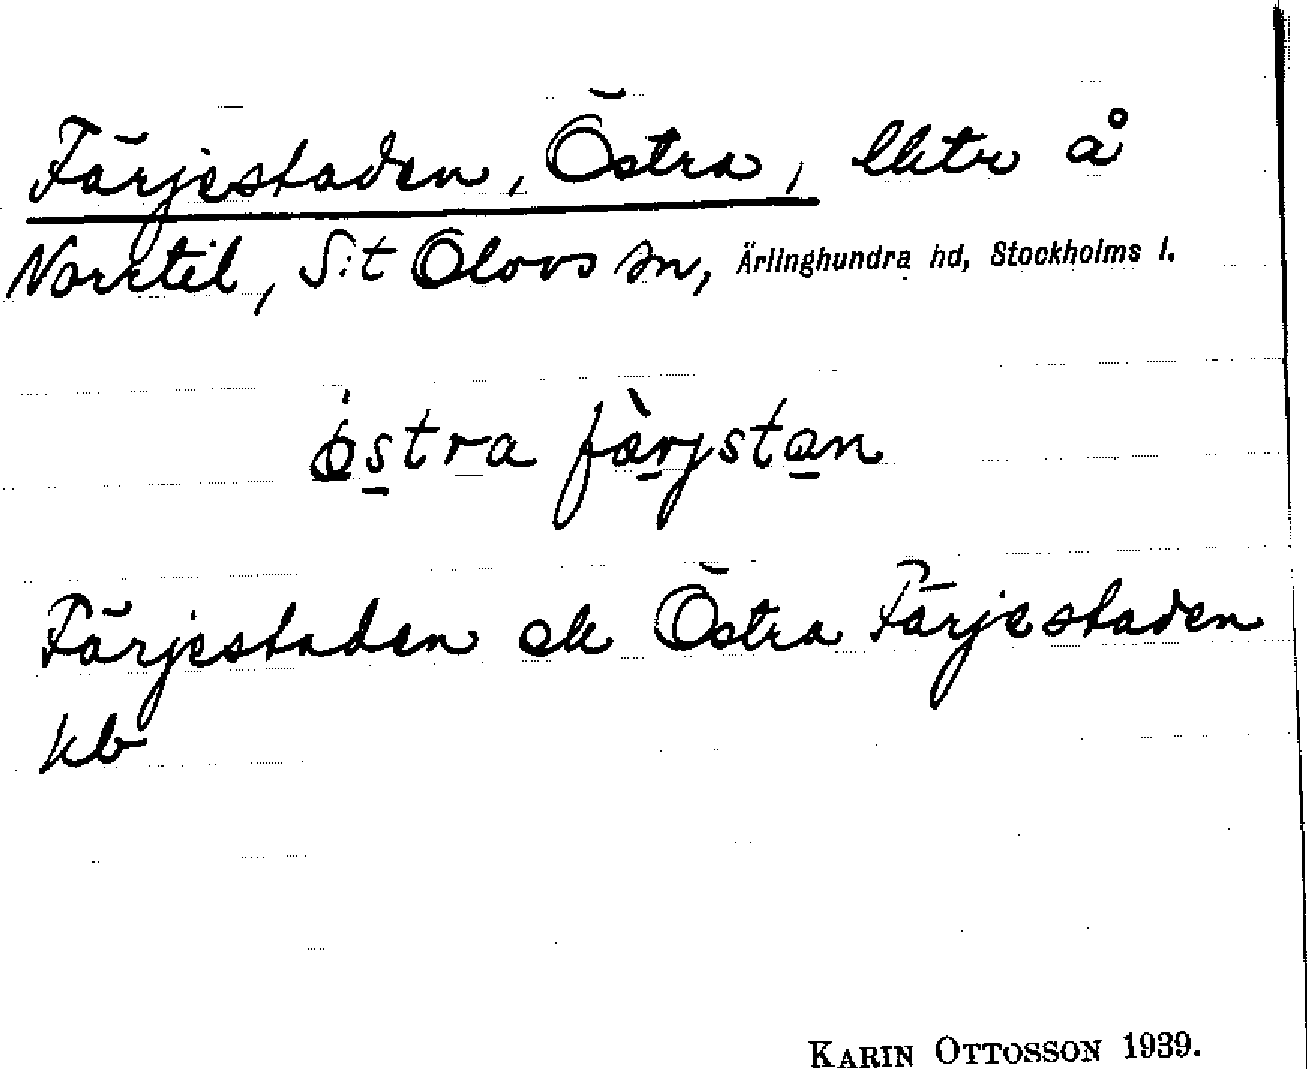 Färjestaden, Östra, lhtr å
Norrtil, S:t Olovs sn, Ärlinghundra hd, Stockholms l.
östra färjstan
Färjestaden ek Östra Färjestaden
kb
KARIN OTTOSSON 1939.